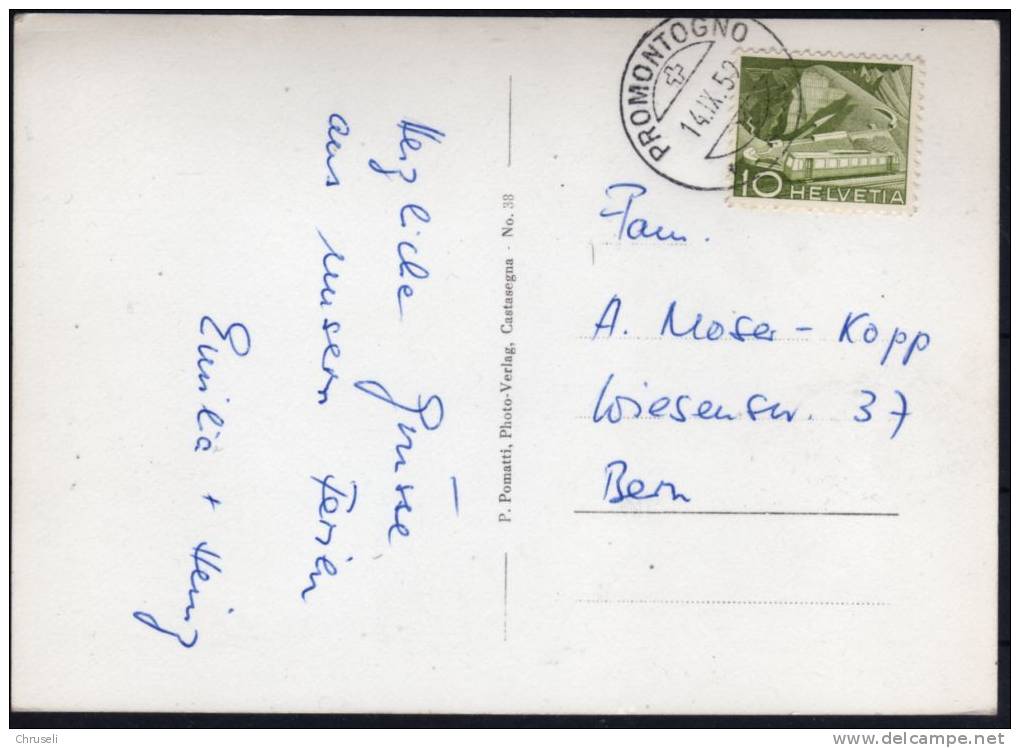 Herzliche Grüsse
aus unsern Ferien
Emilia + Heinz
P. Pomatti, Photo-Verlag, Castasegna - No. 38
PROMONTOGNO
14.IX.59
10 HELVETIA
Fam.
A. Moser-Kopp
Wiesenstr. 37
Bern
Chruseli
delcampe.net